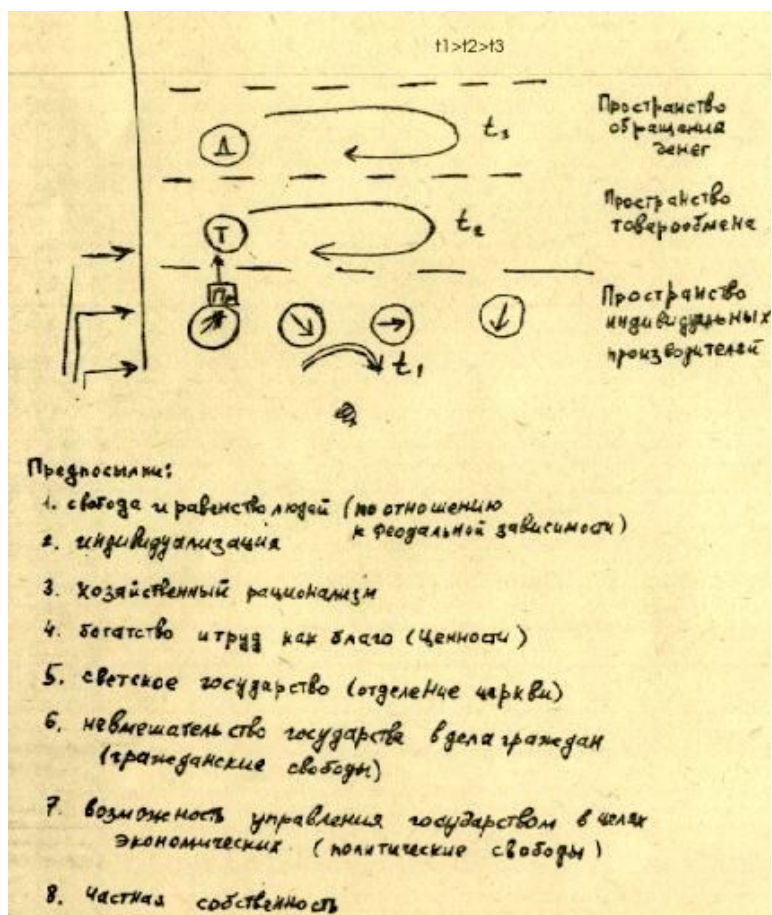 t1>t2>t3
Пространство
обращения
денег
Д
t₃
Пространство
товарообмена
Т
t₂
Пространство
индивидуальных
производителей
Пр
t₁
Предпосылки:
1. свобода и равенство людей (по отношению
к феодальной зависимости)
2. индивидуализация
3. хозяйственный рационализм
4. богатство и труд как благо (ценности)
5. светское государство (отделение церкви)
6. невмешательство государства в дела граждан
(гражданские свободы)
7. возможность управления государством в целях
экономических (политические свободы)
8. частная собственность